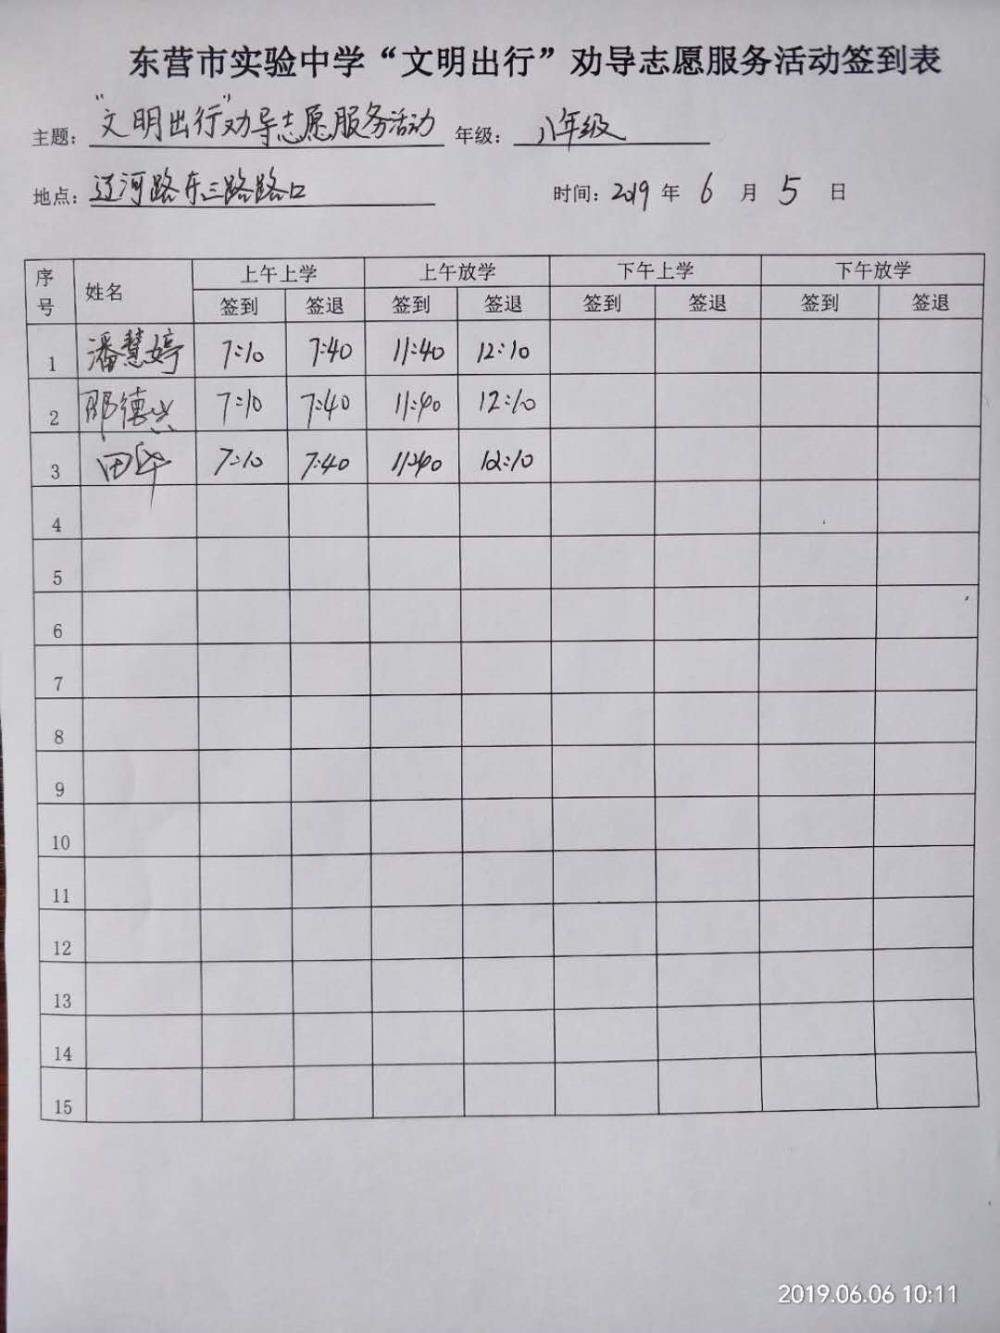 东营市实验中学“文明出行”劝导志愿服务活动签到表
主题：“文明出行”劝导志愿服务活动 年级：八年级
地点：辽河路东三路路口 时间：2019 年 6 月 5 日
序号 姓名 上午上学 上午放学 下午上学 下午放学
签到 签退 签到 签退 签到 签退 签到 签退
1 潘慧婷 7:10 7:40 11:40 12:10
2 7:10 7:40 11:40 12:10
3 7:10 7:40 11:40 12:10
4
5
6
7
8
9
10
11
12
13
14
15
2019.06.06 10:11